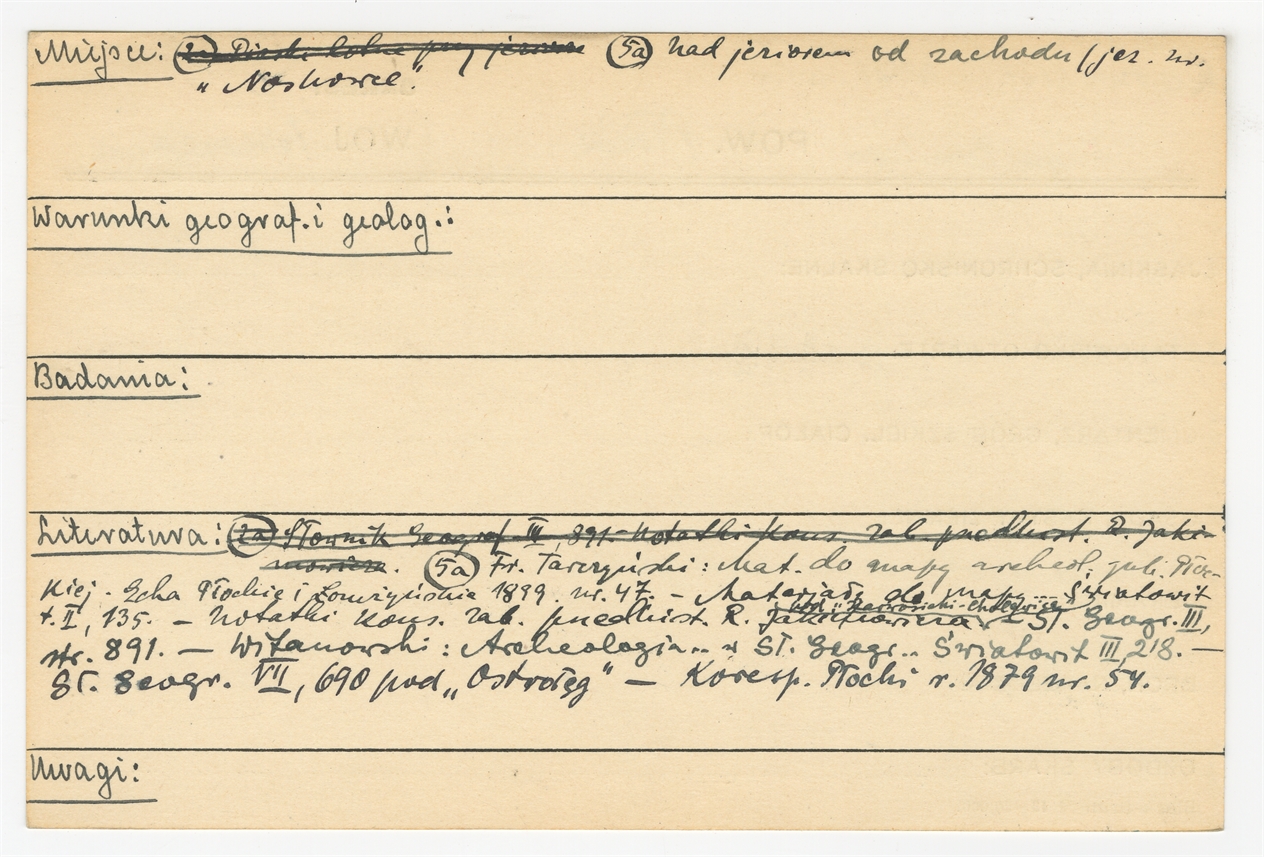 Miejsce: (5a) nad jeziorem od zachodu (jez. nr.
"Noskowce".
Warunki geograf. i geolog.:
Badania:
Literatura: (2a) Słownik Geograf III, 891. Notatki Kons. zab. predhist. R. Jaki-
mowicza. (5a) Fr. Tarczyński: Mat. do mapy archeol. gub. Płoc-
kiej. Echa Płockie i Łomżyńskie 1899 nr. 47. – Materjały do mapy... Światowit
t. II, 135. – Notatki Kons. zab. predhist. R. Jakimowicza – Sł. Geogr. III,
str. 891. – Witanowski: Archeologia.. w Sł. Geogr.. Światowit III, 218. –
Sł. Geogr. VII, 690 pod „Ostrołęg" – Koresp. Płocki r. 1879 nr. 54.
Uwagi: